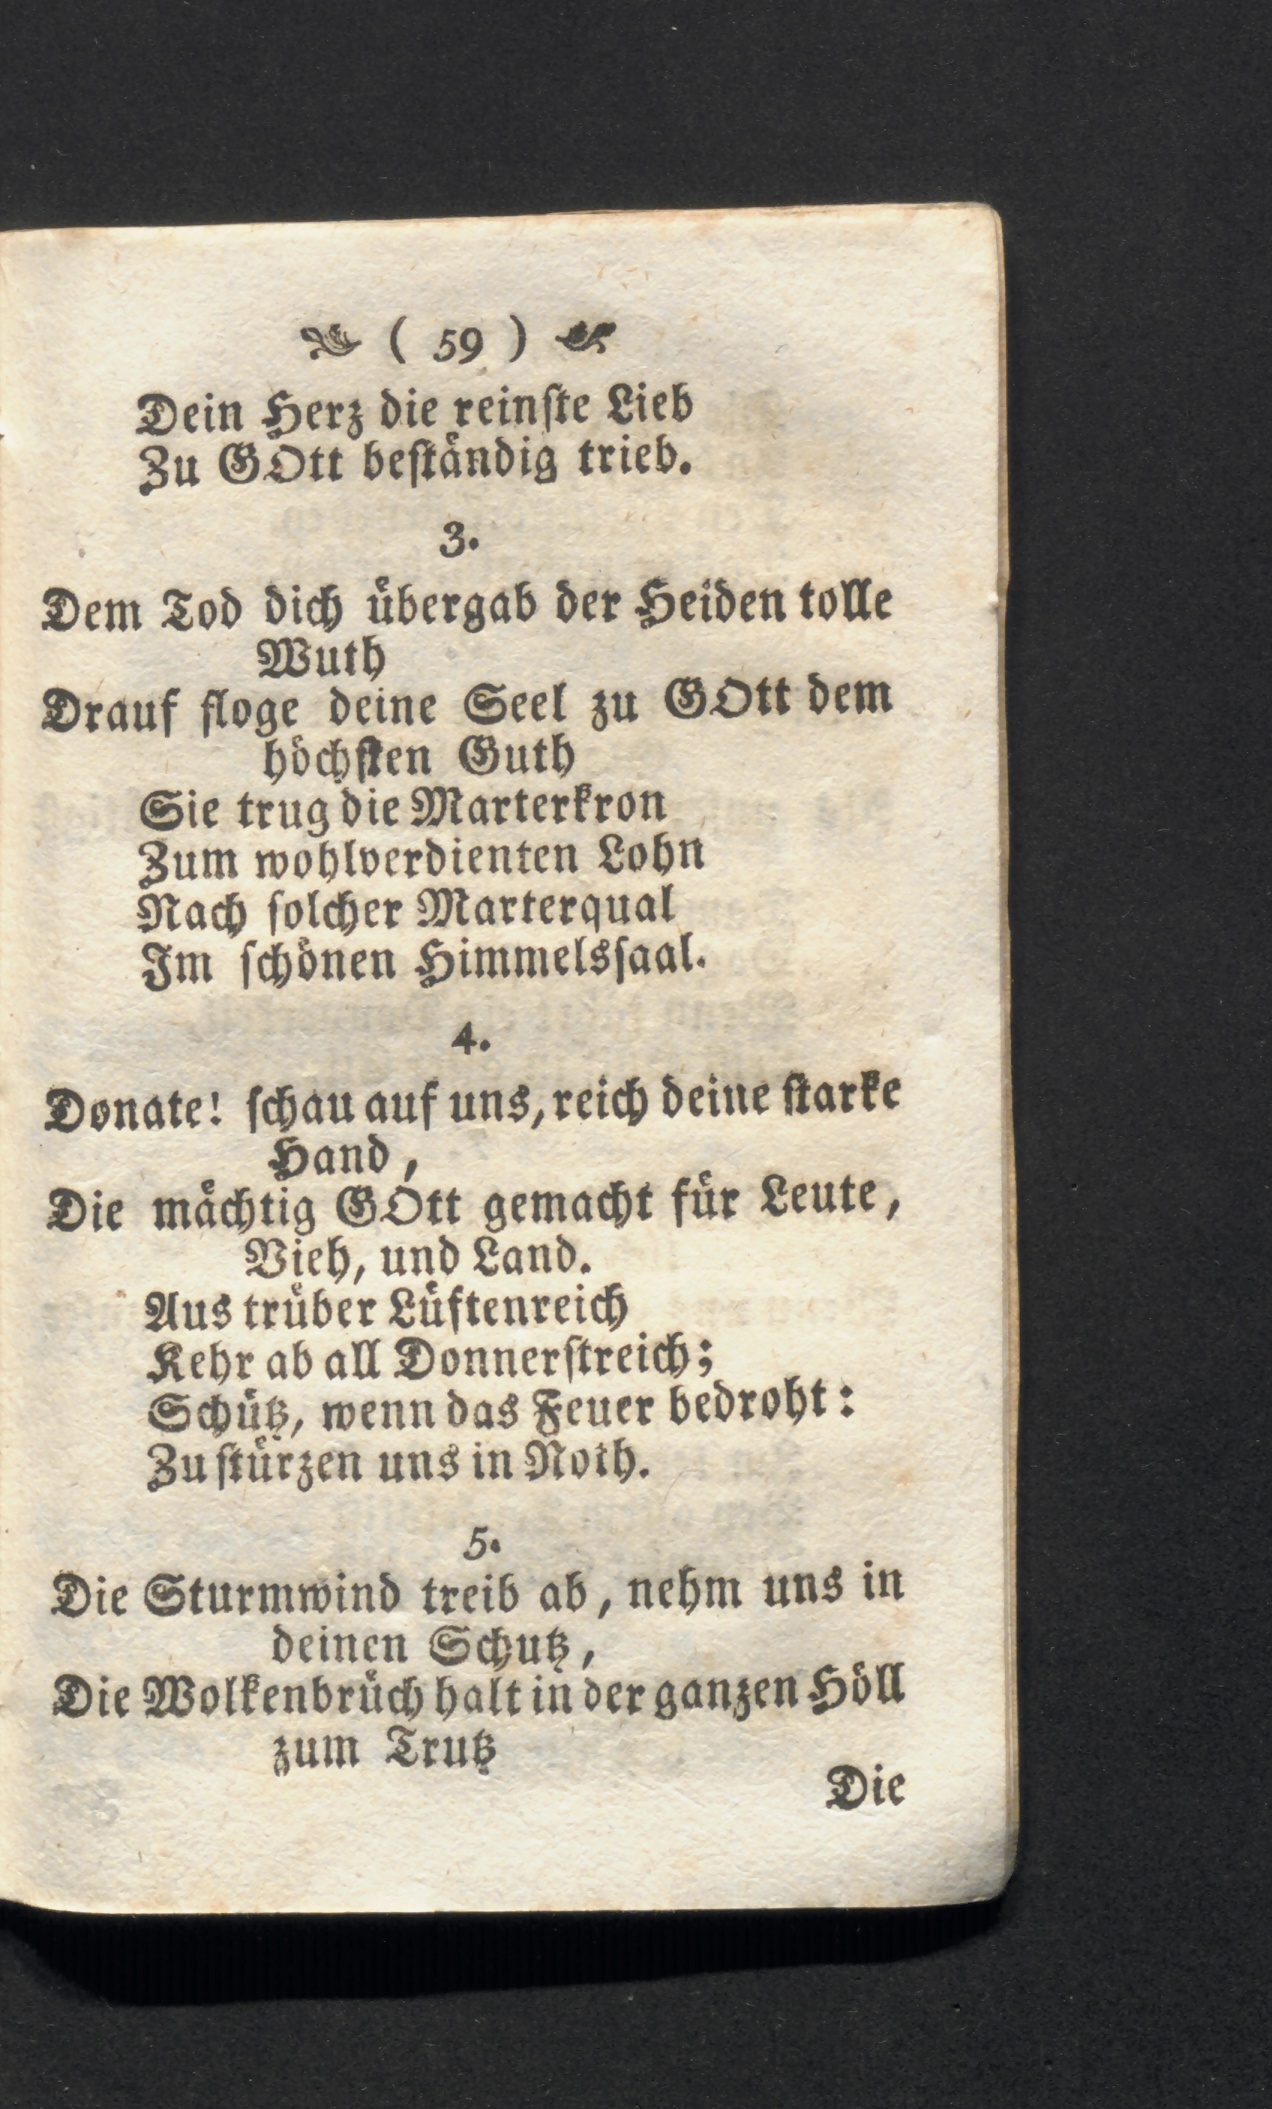 ( 59 )
Dein Herz die reinſte Lieb
Zu GOtt beſtändig trieb.
3.
Dem Tod dich übergab der Heiden tolle
Wuth
Drauf floge deine Seel zu GOtt dem
höchſten Guth
Sie trug die Marterkron
Zum wohlverdienten Lohn
Nach ſolcher Marterqual
Im ſchönen Himmelsſaal.
4.
Donate! ſchau auf uns, reich deine ſtarke
Hand,
Die mächtig GOtt gemacht für Leute,
Vieh, und Land.
Aus trüber Lüftenreich
Kehr ab all Donnerſtreich;
Schütz, wenn das Feuer bedroht:
Zu ſtürzen uns in Noth.
5.
Die Sturmwind treib ab, nehm uns in
deinen Schutz,
Die Wolkenbrüch halt in der ganzen Höll
zum Trutz
Die